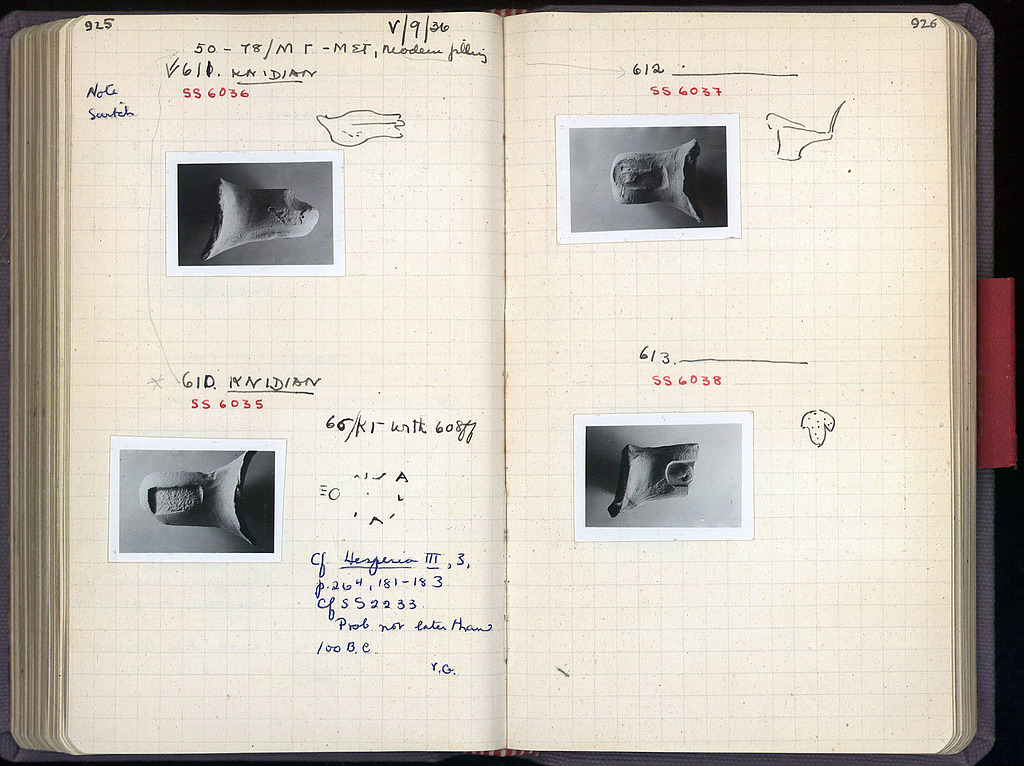 925
V/9/36
50-78/ΜΓ-ΜΣΤ, Modern filling
611. KNIDIAN
SS 6036
Note
Switch
610. KNIDIAN
SS 6035
66/ΚΓ with 608ff
A
O
A
Cf Hesperia III, 3,
p.264, 181-183
Cf SS 2233
Prob not later than
100 B.C.
V.G.
926
612
SS 6037
613.
SS 6038